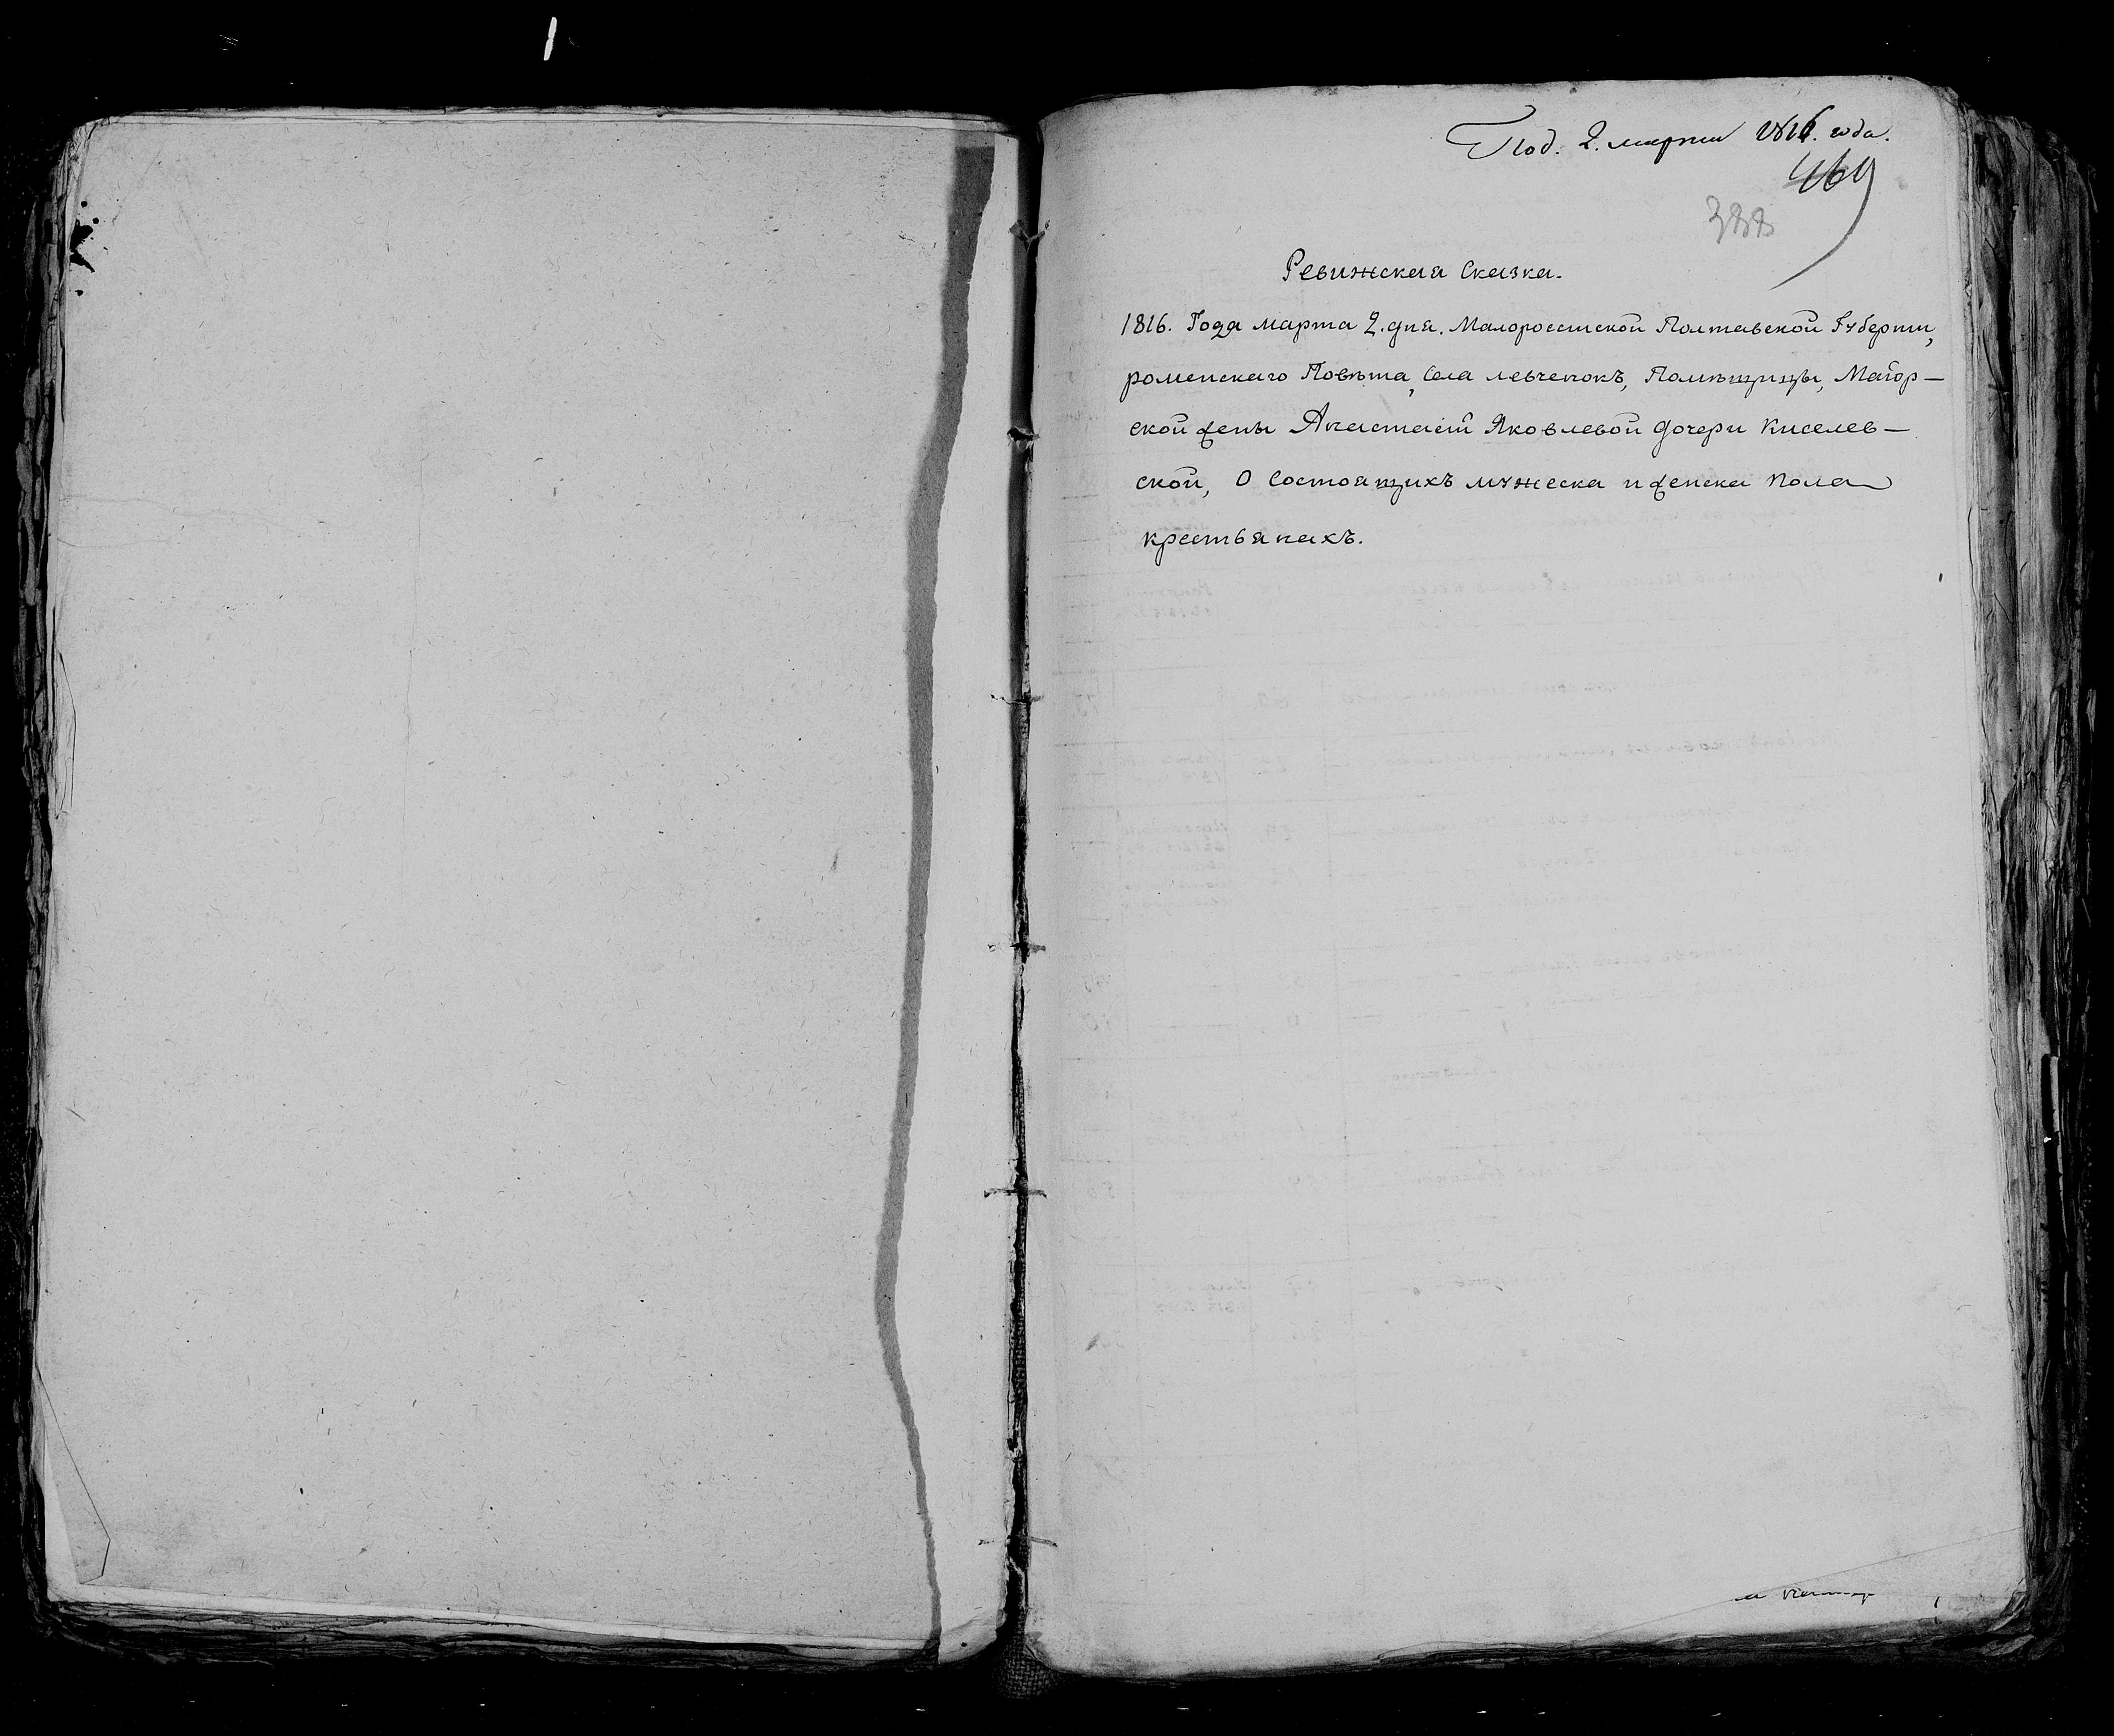 Под. 2. марта 1816. года.
469
388
Ревижская Сказка.
1816. Года марта 2. дня. Малоросстской Полтавской Губернии,
роменскаго Повѣта, Села левченокъ, Помѣщицы, Маіор—
ской жены Анастасіи Яковлевой дочери Киселев—
ской, О Состоящихъ мужеска и женска пола
крестьянахъ.